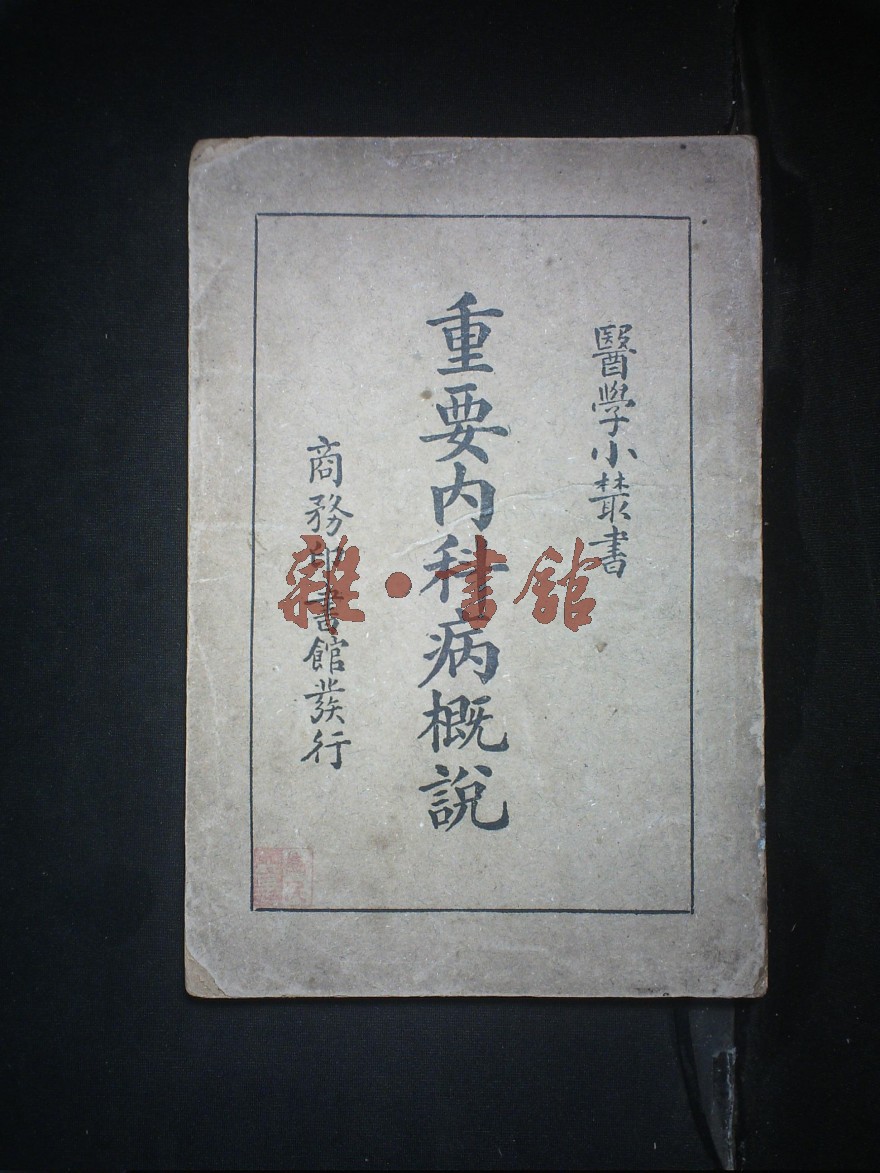 醫學小叢書
重要内科病概說
商務印書館發行
雜·書館